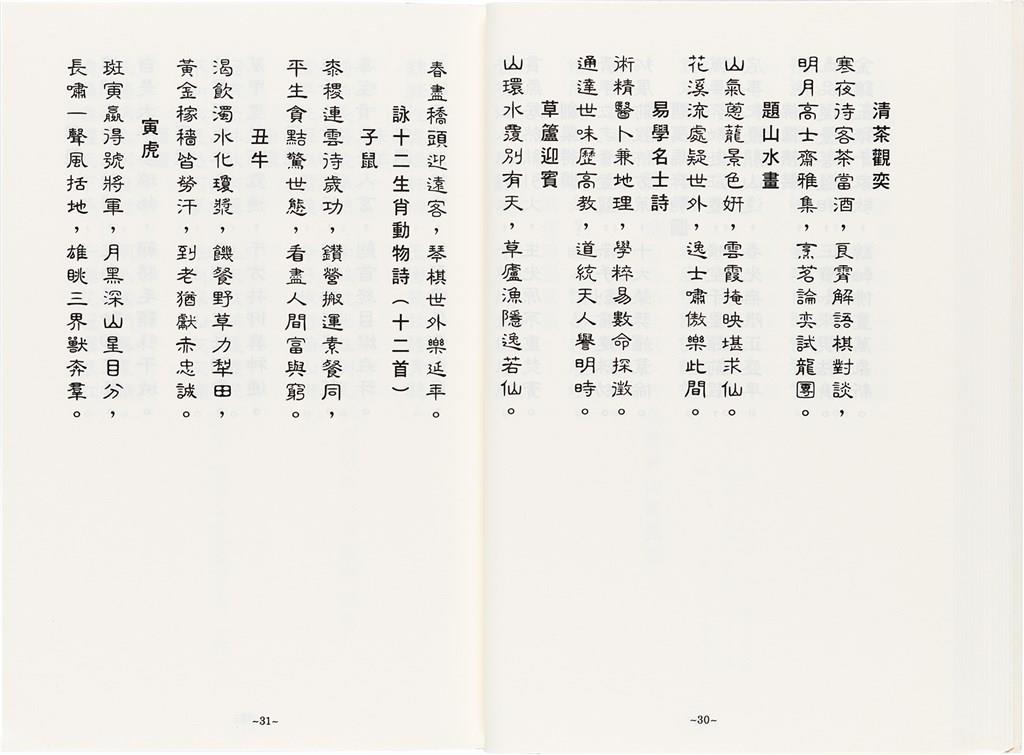 清茶觀奕
寒夜待客茶當酒，良霄解語棋對談，
明月高士齋雅集，烹茗論奕試龍團。
題山水畫
山氣蔥蘢景色妍，雲霞掩映堪求仙。
花溪流處疑世外，逸士嘯傲樂此間。
易學名士詩
術精醫卜兼地理，學粹易數命探徵。
通達世味歷高教，道統天人譽明時。
草籚迎賓
山環水覆別有天，草廬漁隱逸若仙。
~30~
春盡橋頭迎遠客，琴棋世外樂延年。
詠十二生肖動物詩（十二首）
子鼠
黍稷連雲待歲功，鑽營搬運素餐同，
平生貪黠驚世態，看盡人間富與窮。
丑牛
渴飲濁水化瓊漿，饑餐野草力犁田，
黃金稼穡皆勞汗，到老猶獻赤忠誠。
寅虎
班寅贏得號將軍，月黑深山星目分，
長嘯一聲風括地，雄眺三界獸奔羣。
~31~